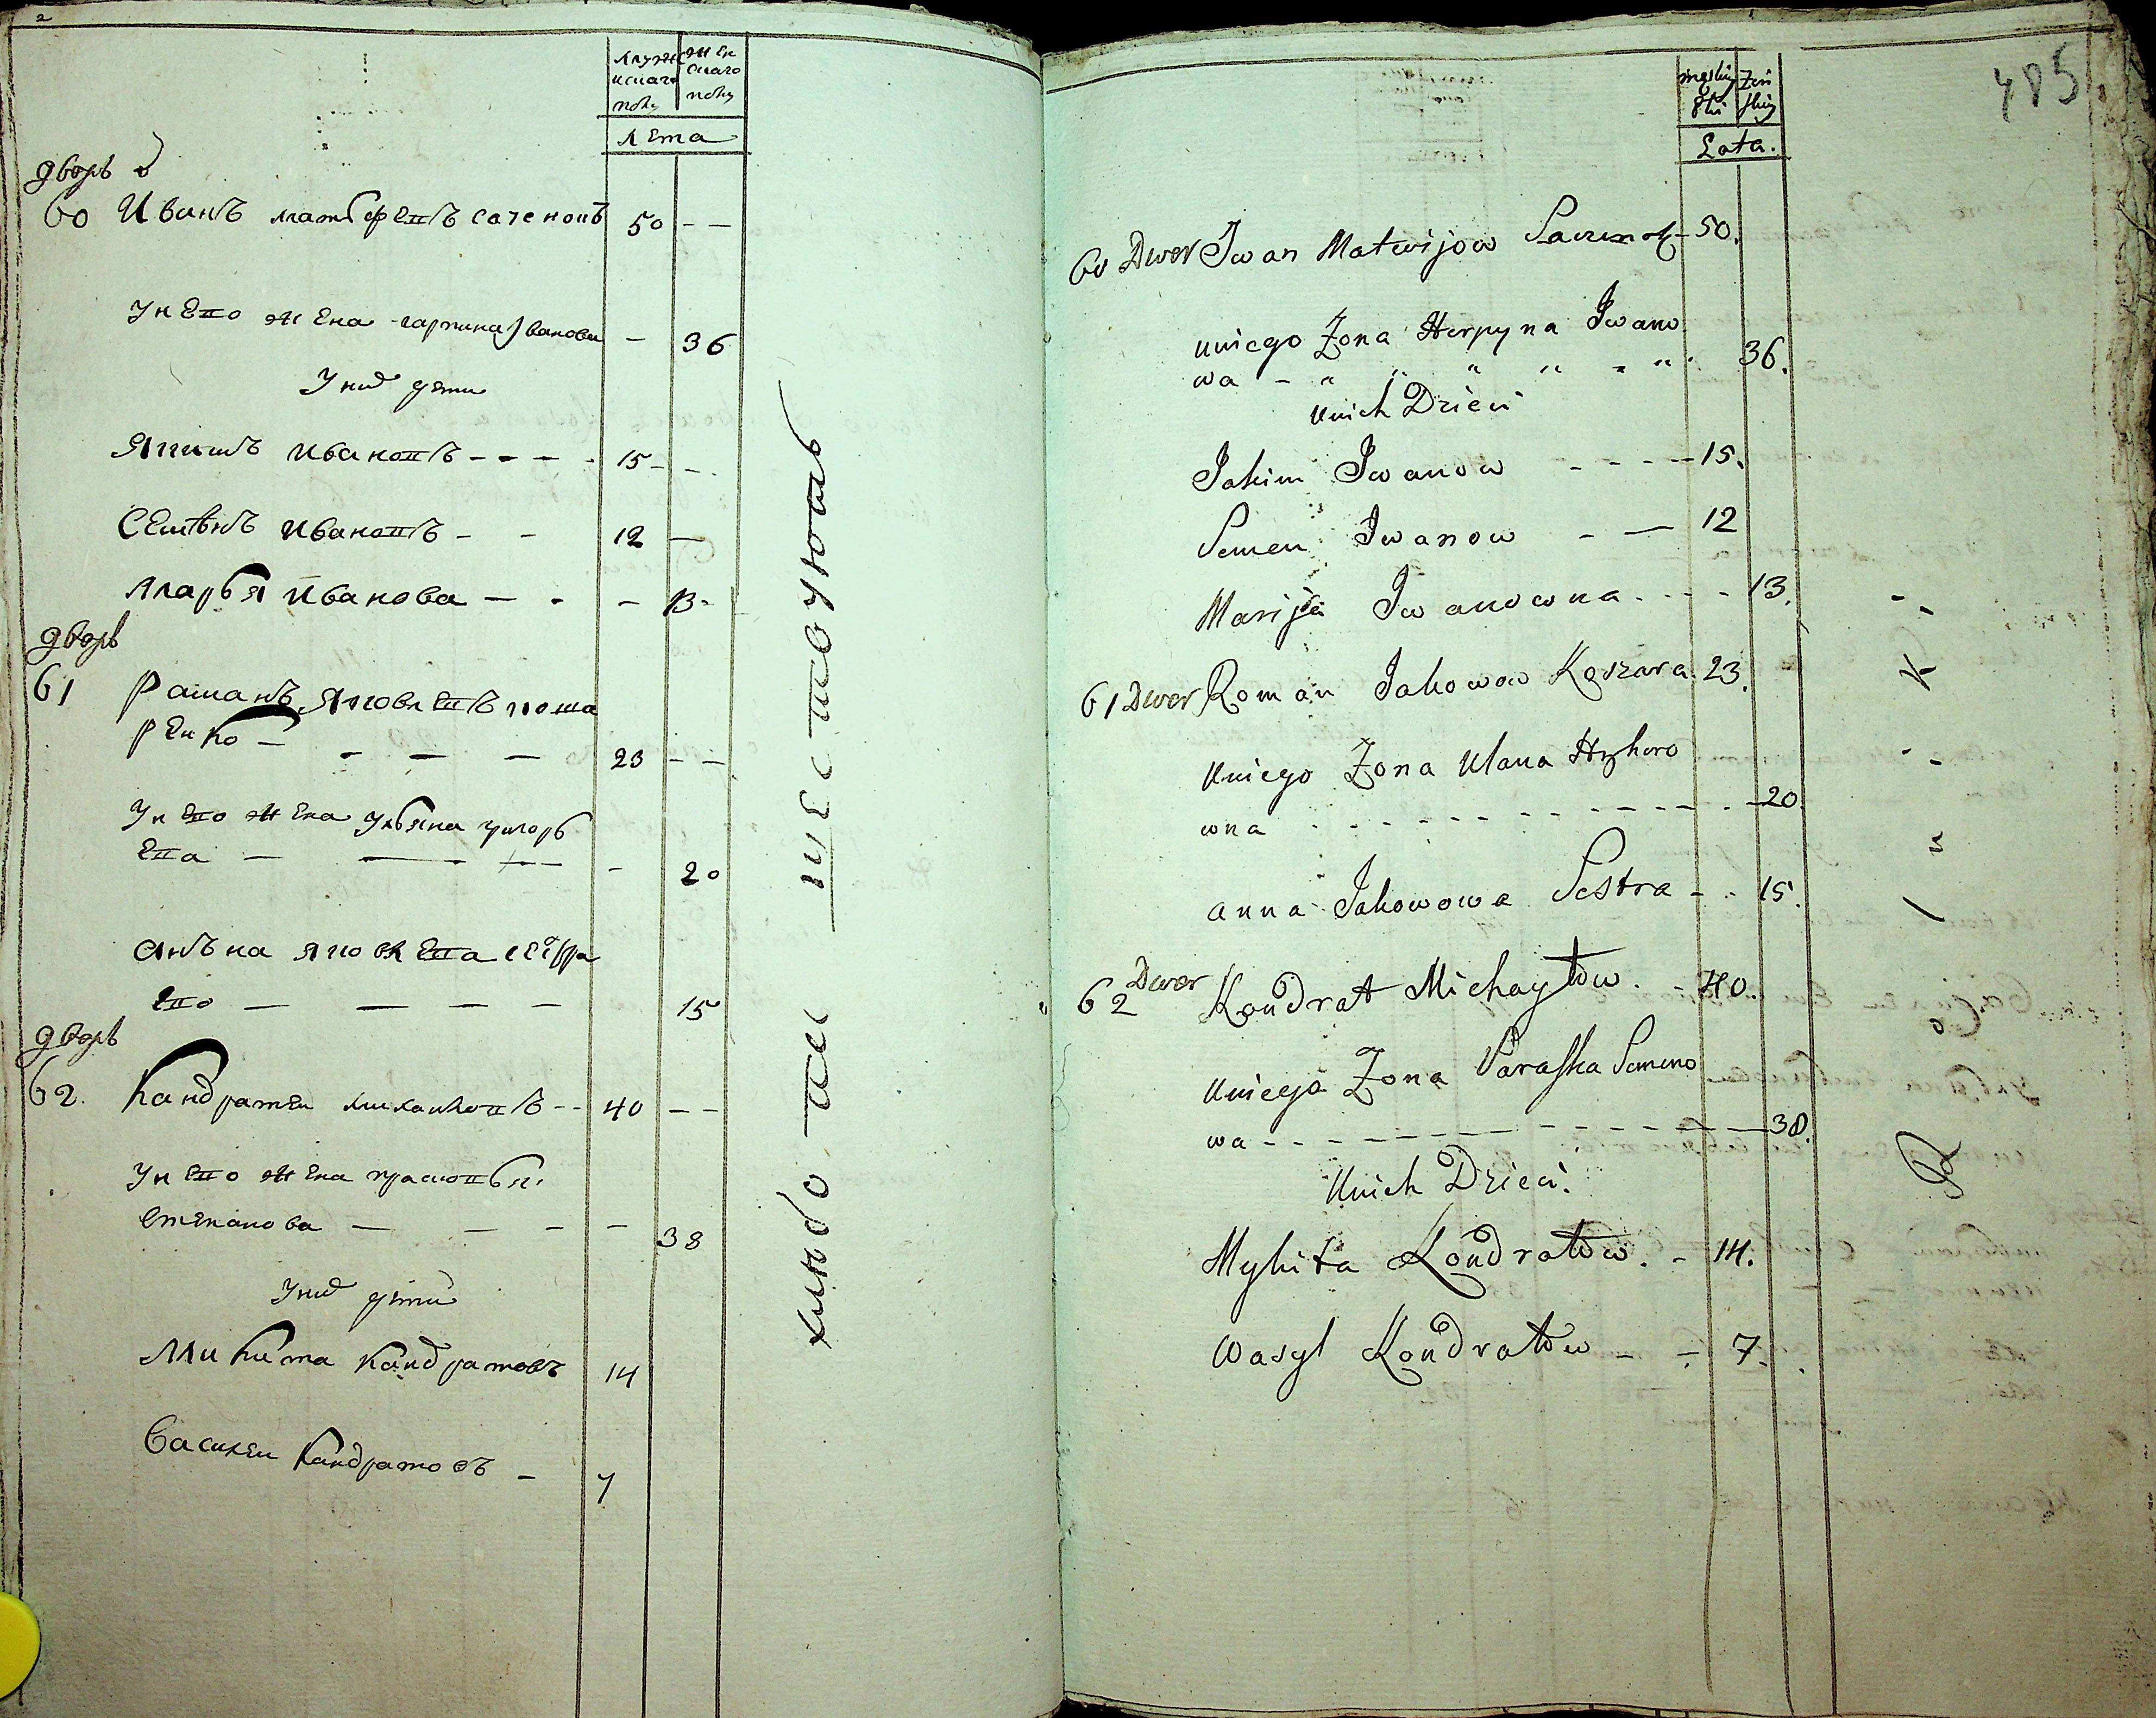 мужескаго полу
женскаго полу
Лета
дворъ
60 Иванъ матвѣевъ саченокъ 50 - -
У него жена гарпина Иванова - 36
У них дети
Якимъ Ивановъ - - - - 15 - -
Семѣнъ Ивановъ - - 12 -
Марья Иванова - - - 13 -
дворъ
61 Раманъ Яковлевъ коша
ренко - - - - 23 - -
У него жена Ульяна григорь
ева - - - - 20
Анъна Яковлева сестра
его - - - - 15
дворъ
62. Кандратеи михаиловъ - - 40 - -
У него жена прасковья
степанова - - - - 38
У них дети
Микита Кандратовъ 14
Василеи Кандратовъ - 7
485
męskiey Płci
Żeńskiey
Lata.
60 Dwor Iwan Matwijow Saczenok - 50.
uniego Żona Harpyna Iwano
wa - " " " " " " 36.
unich Dzieci
Jakim Iwanow - - - - 15.
Semen Iwanow - - 12
Marija Iwanowna - - - - 13.
61 Dwor Roman Jakowow Koszara 23.
Uniego Żona Ulana Hryhoro
wna - - - - - - - - - - 20.
Anna Jakowowa Sestra - - 15.
62 Dwor Kondrat Michayłow. - 40
Uniego Żona Paraska Semeno
wa - - - - - - - - - - 38.
Unich Dzieci.
Mykita Kondratow. - 14.
Wasyl Kondratow - - 7.